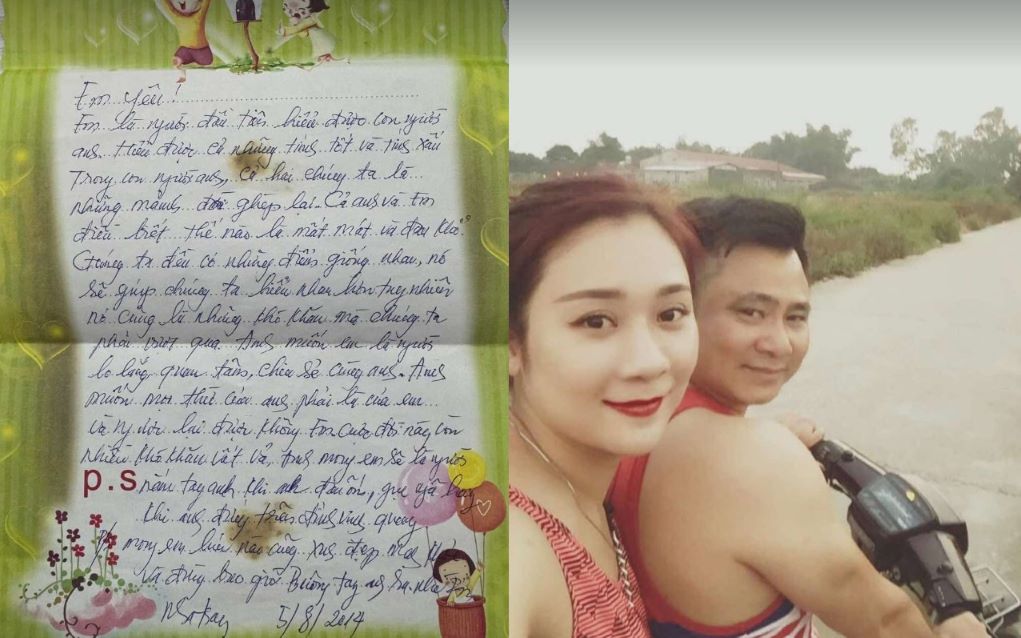 Em yêu!
Em là người đầu tiên hiểu được con người
anh. Hiểu được cả những tính tốt và tính xấu
Trong con người anh, cả hai chúng ta là
những mảnh đời ghép lại. Cả anh và Em
điều biết thế nào là mất mát và đau khổ
Chúng ta đều có những điểm giống nhau, nó
sẽ giúp chúng ta hiểu nhau hơn tuy nhiên
nó cũng là những khó khăn mà chúng ta
phải vượt qua. Anh muốn em là người
lo lắng, quan tâm, chia sẻ cùng anh. Anh
muốn mọi thứ của anh phải là của em
và ngược lại được không Em cuộc đời này còn
nhiều khó khăn vất vả, Anh mong em sẽ là người
p.s
nắm tay anh khi anh đau ốm, gục ngã hay
khi anh đứng trên đỉnh vinh quang
mong em lúc nào cũng xinh đẹp
và đừng bao giờ Buông tay anh Em nhé
5/8/2014